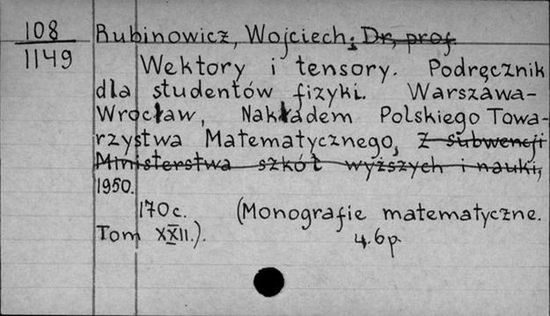 108
1149
Rubinowicz, Wojciech; Dr, prof.
Wektory i tensory. Podręcznik
dla studentów fizyki. Warszawa-
Wrocław, Nakładem Polskiego Towa-
rzystwa Matematycznego, z subwencji
Ministerstwa szkół wyższych i nauki,
1950.
170 c. (Monografie matematyczne.
Tom XXII.). 4.6 p.